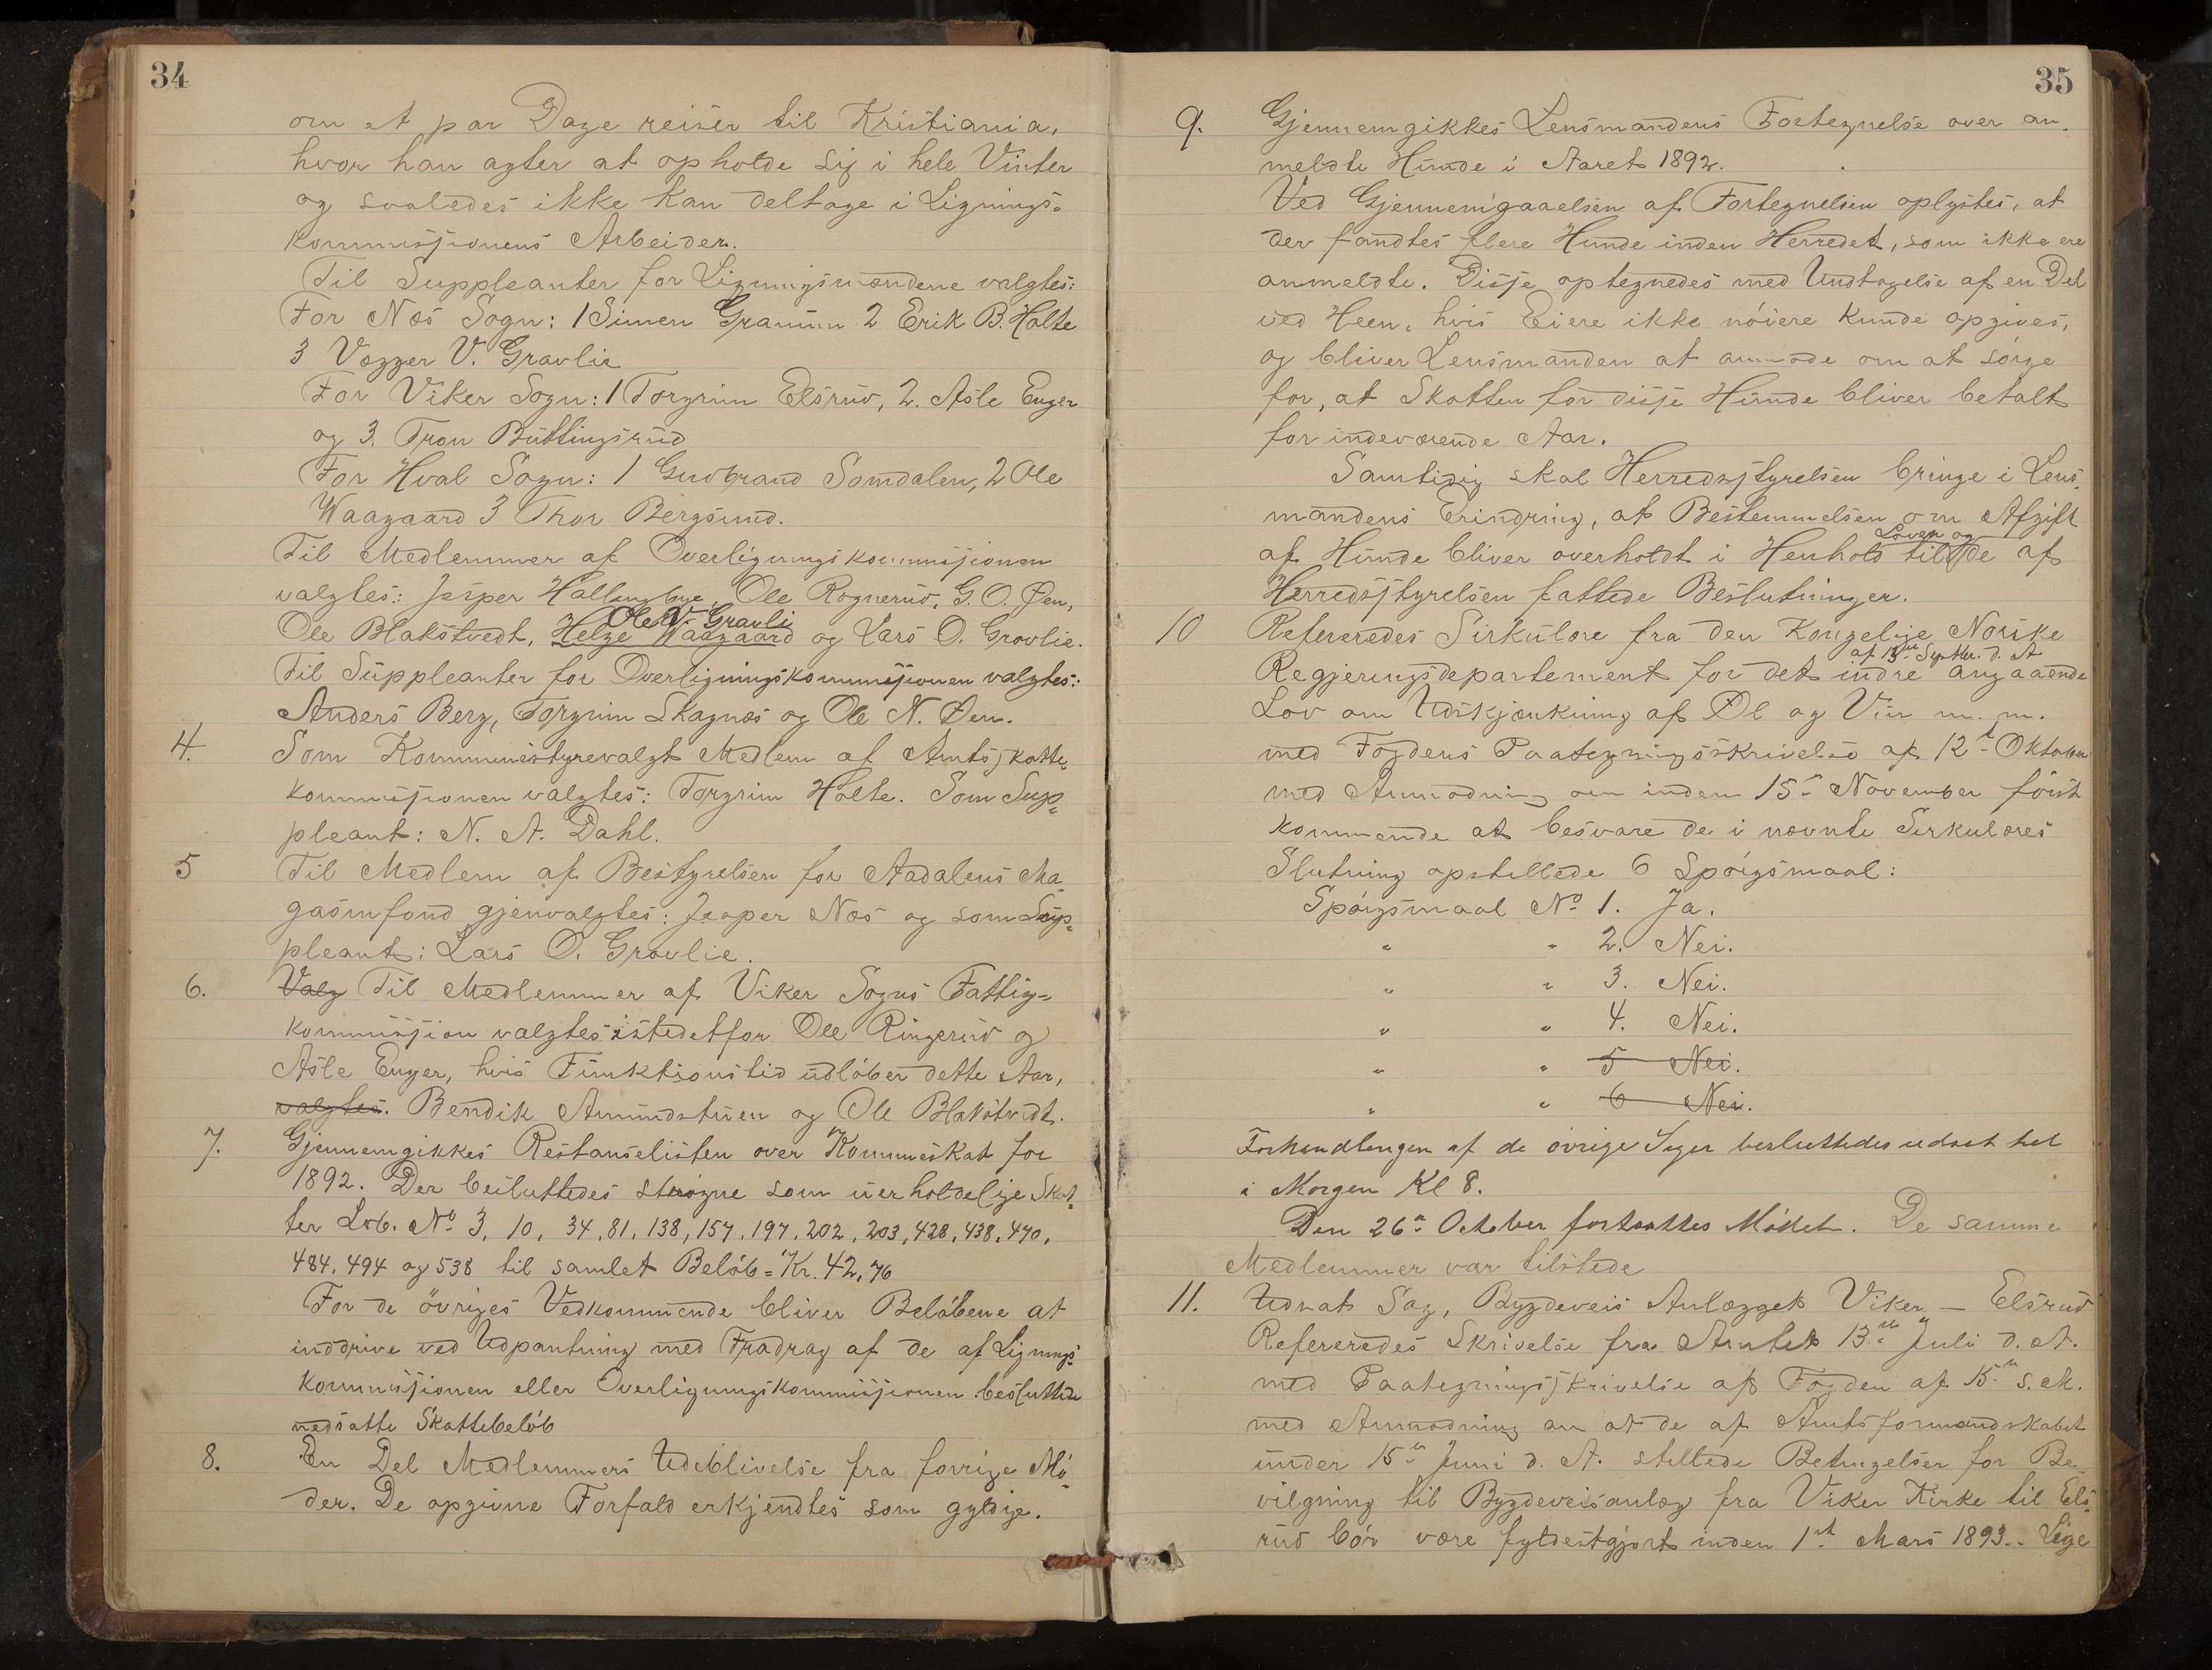 34
om et par Dage reiser til Kristiania,
hvor han agter at opholde sig i hele Vinter
og saaledes ikke kan deltage i Lignings-
kommissjonens Arbeider.
Til Suppleanter for Ligningsmændene valgtes:
For Næs Sogn: 1 Simen Gramm 2 Erik B. Holte
3 Vegger V. Gravlie
For Viker Sogn: 1 Torgrim Elsrud, 2. Asle Enger
og 3. Tron Buttingsrud
For Hval Sogn: 1 Gudbrand Somdalen, 2 Ole
Waagaard 3 Thor Bergsund.
Til Medlemmer af Overligningskommissjonen
valgtes: Jesper Hallingbye, Ole Rognerud, G. O. Øen,
Ole V. Gravli
Ole Blakstvedt, Helge Waagaard og Lars O. Gravlie.
Til Suppleanter for Overligningskommissjonen valgtes:
Anders Berg, Torgrim Skagnæs og Ole N. Øen.
4. Som Kommunestyrevalgt Medlem af Amtsskatte-
kommissjonen valgtes: Torgrim Holte. Som Sup-
pleant: N. A. Dahl.
5 Til Medlem af Bestyrelsen for Aadalens Ma-
gasinfond gjenvalgtes: Jesper Næs og som Sup-
pleant: Lars O. Gravlie.
6. Valg Til Medlemmer af Viker Sogns Fattig-
kommissjon valgtes istedetfor Ole Ringerud og
Asle Enger, hvis Funktionstid udløber dette Aar,
valgtes. Bendik Amundstuen og Ole Blakstvedt.
7. Gjennemgikkes Restanselisten over Kommuneskat for
1892. Der besluttedes strøgne som uerholdelige Skat-
ter Løb. No 3, 10, 34, 81, 138, 157, 197, 202, 203, 428, 438, 470,
484, 494 og 538 til samlet Beløb = Kr. 42,76
For de øvriges Vedkommende bliver Beløbene at
inddrive ved Udpantning med Fradrag af de af Lignings-
kommissjonen eller Overligningskommissjonen besluttede
nedsatte Skattebeløb
8. En Del Medlemmers Udeblivelse fra forrige Mø-
der. De opgivne Forfald erkjendtes som gyldige.
35
9. Gjennemgikkes Lensmandens Fortegnelse over an-
meldte Hunde i Aaret 1892.
Ved Gjennemgaaelsen af Fortegnelsen oplystes, at
der fandtes flere Hunde inden Herredet, som ikke ere
anmeldte. Disse optegnedes med Undtagelse af en Del
ved Heen, hvis Eiere ikke nøiere kunde opgives,
og bliver Lensmanden at anmode om at sørge
for, at Skatten for disse Hunde bliver betalt
for indeværende Aar.
Samtidig skal Herredsstyrelsen bringe i Lens-
mandens Erindring, at Bestemmelsen om Afgift
Loven og
af Hunde bliver overholdt i Henhold til de af
Herredsstyrelsen fattede Beslutninger.
10 Refereredes Sirkulære fra den Kongelige Norske
af 13de Septbr. d. A.
Regjeringsdepartement for det indre angaaende
Lov om Udskjænkning af Øl og Vin m. m.
med Fogdens Paategningsskrivelse af 12te Oktober
med Anmodning om inden 15de November først
kommende at besvare de i nævnte Serkulæres
Slutning opstillede 6 Spørgsmaal:
Spørgsmaal No 1. Ja.
" " 2. Nei.
" " 3. Nei.
" " 4. Nei.
" " 5 Nei.
" " 6 Nei.
Forhandlingen af de øvrige Sager besluttedes udsat til
i Morgen Kl 8.
Den 26de October fortsattes Mødet. De samme
Medlemmer var tilstede
11. Udsat Sag, Bygdeveis Anlægget Viker – Elsrud
Refereredes Skrivelse fra Amtet 13de Juli d. A.
med Paategningsskrivelse af Fogden af 15de s. M.
med Anmodning om at de af Amtsformandskabet
under 15de Juni d. A. stillede Betingelser for Be-
vilgning til Bygdeveisanlæg fra Viker Kirke til Els-
rud bør være fyldestgjort inden 1st Mars 1893. Lige